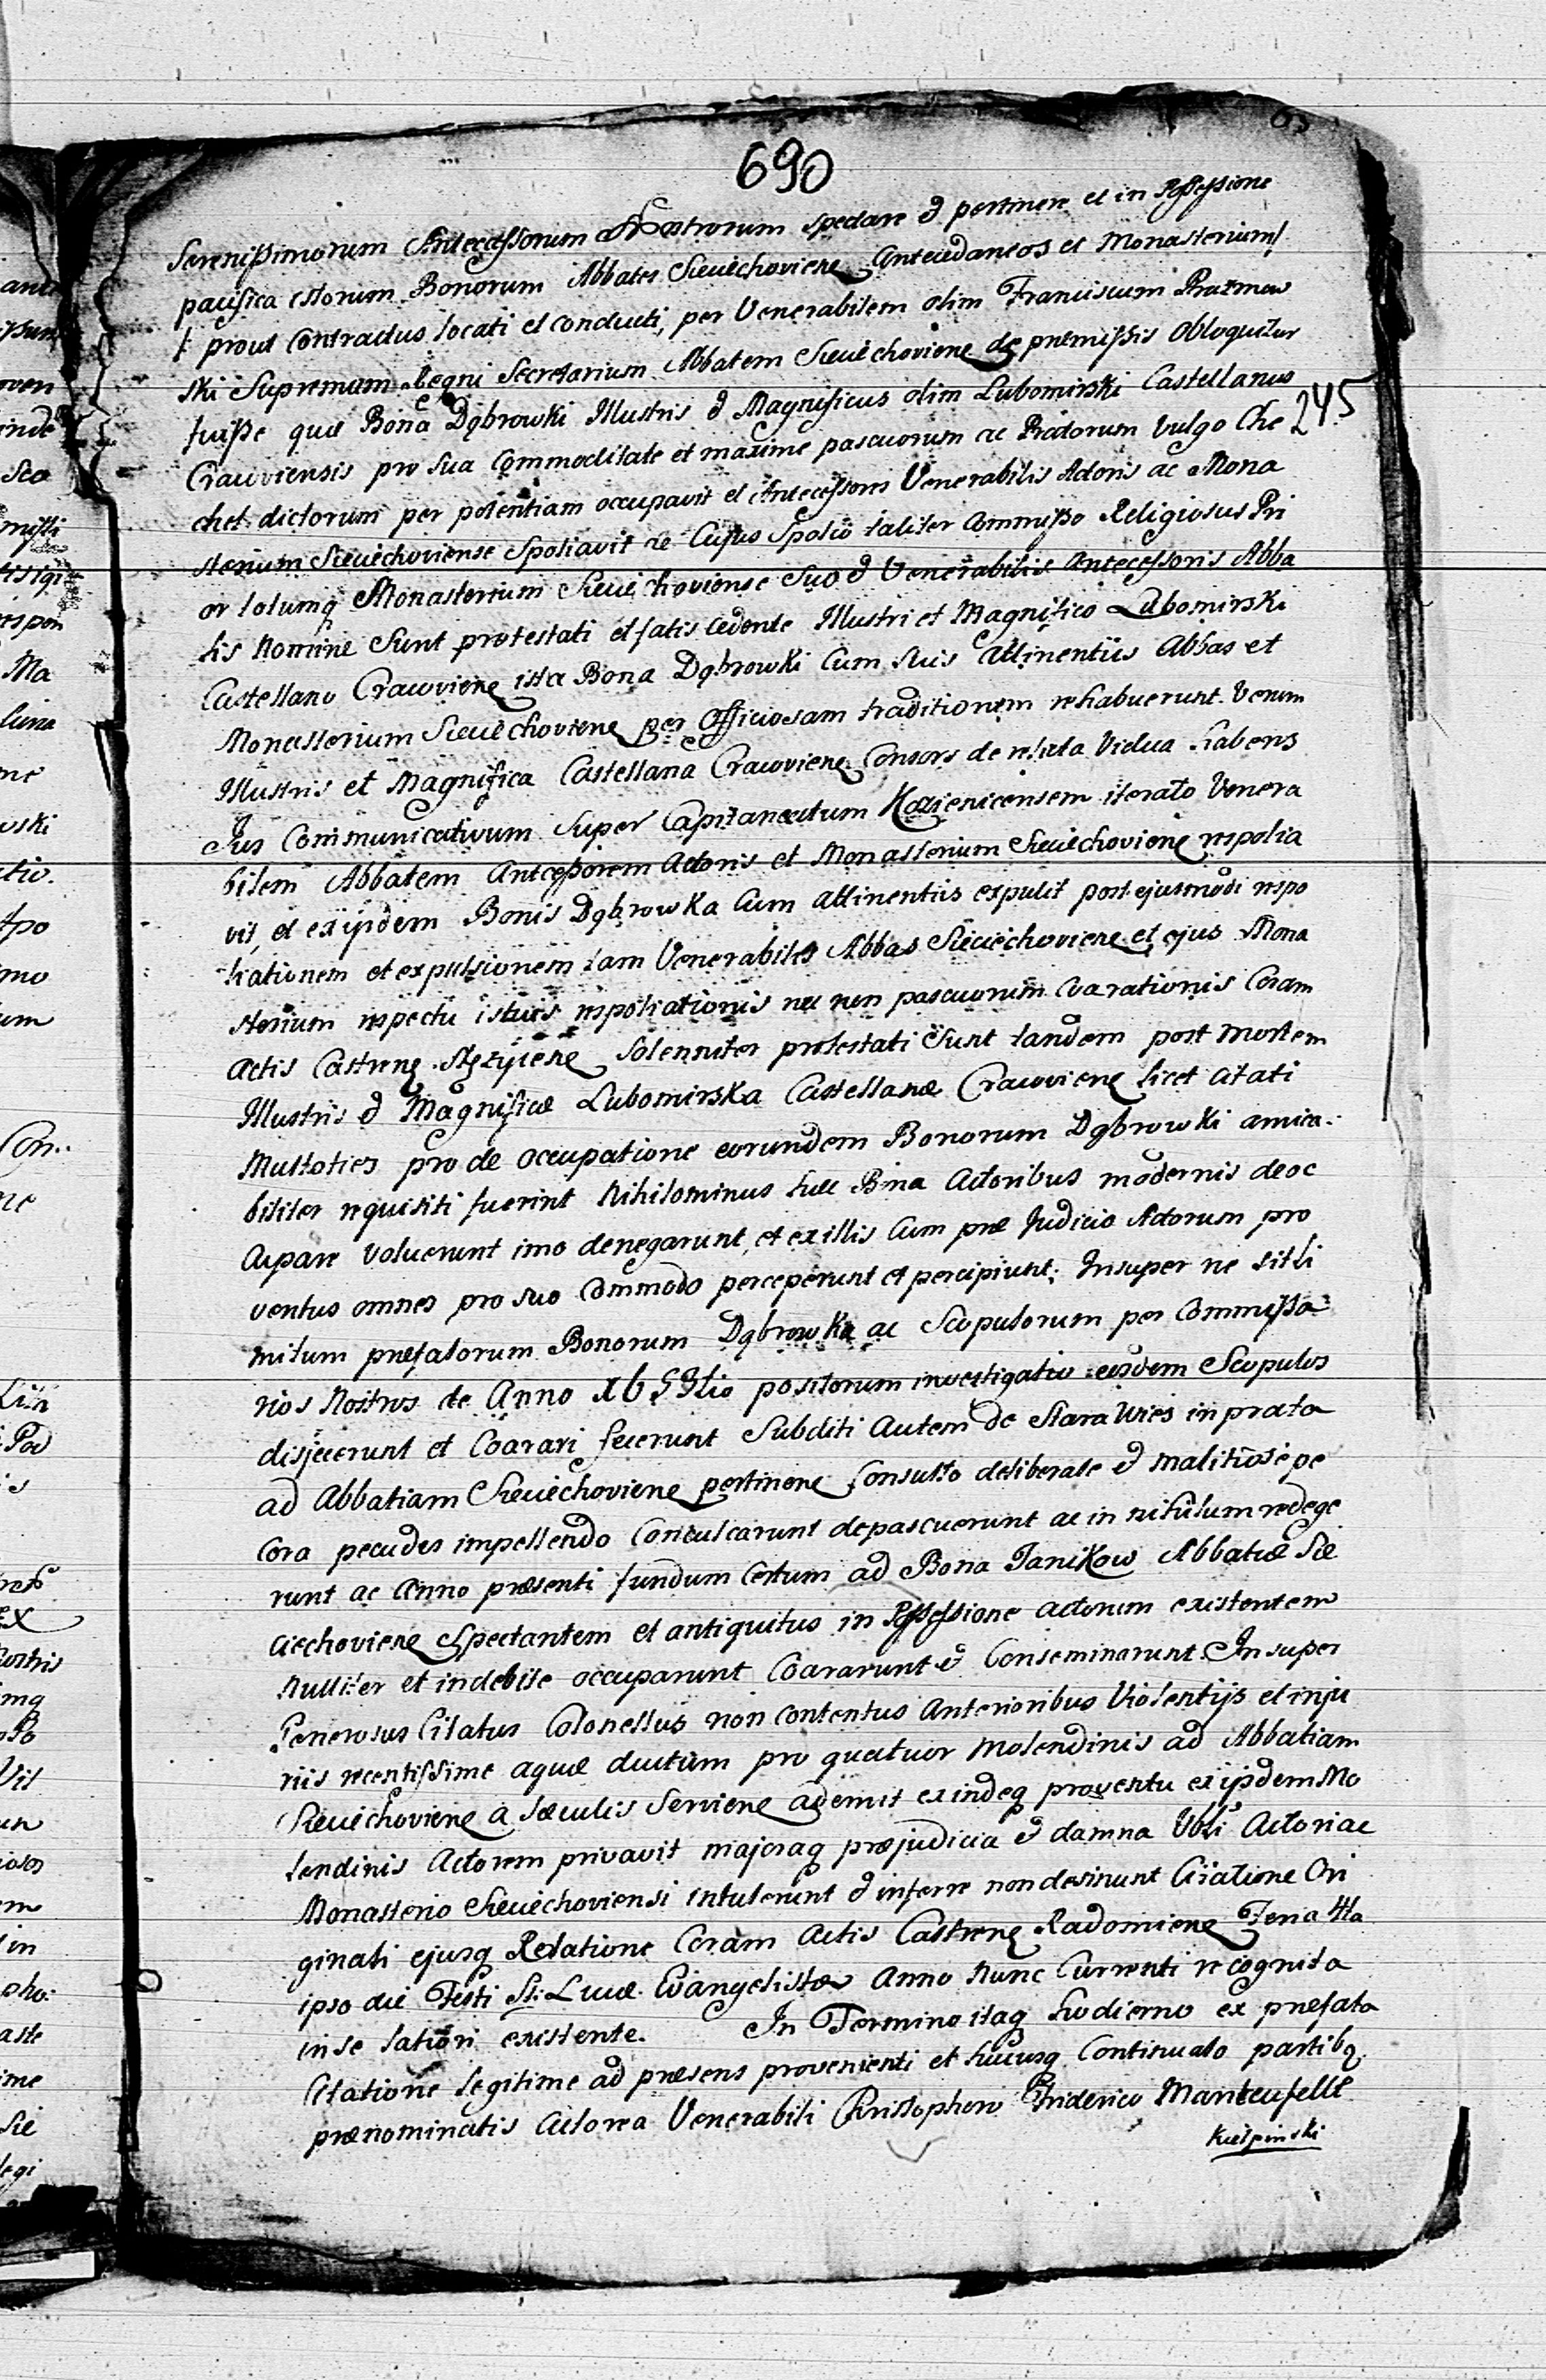 690
Serenissimorum Antecessorum Nostrorum spectare & pertinere et in Possessione
pacifica istorum Bonorum Abbates Sieciechoviens Antecedaneos et Monasterium
/: prout Contractus locati et conducti, per Venerabilem olim Franciscum Prazmow
ski Supremum Regni Secretarium Abbatem Sieciechoviens de præmissis obloquitur
fuisse quæ Bona Dąbrowki Illustris & Magnificus olim Lubomirski Castellanus
245
Cracoviensis pro sua Commoditate et maxime pascuorum ac Pratorum vulgo Che
chet dictorum per potentiam occupavit et Antecessorem Venerabilis Actoris ac Mona
sterium Sieciechoviense Spoliavit de Cujus Spolio taliter Commisso Religiosus Pri
or totumq Monasterium Sieciechoviense Suo & Venerabilis Antecessoris Abba
tis Nomine Sunt protestati et fatis cedente Illustri et Magnifico Lubomirski
Castellano Cracoviens ista Bona Dąbrowki Cum Suis Attinentiis Abbas et
Monasterium Sieciechoviens per Officiosam traditionem rehabuerunt. Verum
Illustris et Magnifica Castellana Cracoviens Consors derelicta Vidua habens
Jus Communicativum Super Capitaneatum Kozienicensem iterato Venera
bilem Abbatem Antecessorem Actoris et Monasterium Sieciechoviens respolia
vit, et ex iisdem Bonis Dąbrowka Cum attinentiis expulit post ejusmodi respo
liationem et expulsionem tam Venerabiles Abbas Sieciechoviens et ejus Mona
sterium respectu istius respoliationis nec non pascuorum Coarationis Coram
Actis Castrens Stężyciens Solenniter protestati Sunt tandem post mortem
Illustris & Magnificæ Lubomirska Castellanæ Cracoviens licet citati
Multoties pro de occupatione eorundem Bonorum Dąbrowki amica
biliter requisiti fuerint Nihilominus hæc Bona Actoribus modernis deoc
cupare voluerunt imo denegarunt, et ex illis Cum præ Judicio Actorum pro
ventus omnes pro suo Commodo perceperunt et percipiunt; Insuper ne sit li
mitum præfatorum Bonorum Dąbrowka ac Scopulorum per Commissa
rios Nostros de Anno positorum investigatio eosdem Scopulos
disjecerunt et Coarari fecerunt Subditi Autem de Stara Wies in prata
ad Abbatiam Sieciechoviens pertinens Consulto deliberate & malitiose pe
cora pecudes impellendo Conculcarunt depascuerunt ac in nihilum redege
runt ac Anno præsenti fundum Certum ad Bona Janikow Abbatiæ Sie
ciechoviens Spectantem et antiquitus in Possessione Actorum existentem
Nulliter et indebite occuparunt Coararunt & Conseminarunt. Insuper
Generosus Citatus Colonellus non contentus Anterioribus Violentijs et inju
riis recentissime aquæ ductum pro quatuor Molendinis ad Abbatiam
Sieciechoviens a sæculis Serviens ademit exindeq proventu ex ijsdem Mo
lendinis Actorem privavit majoraq præjudicia & damna Actori ac
Monasterio Sieciechoviensi intulerunt & inferre non desinunt Citatione Ori
ginali ejusq Relatione Coram Actis Castrens Radomiens Feria 4ta
ipso die Festi St: Lucæ Evangelistæ Anno Nunc Currenti recognita
in se latiori existente. In Termino itaq hodierno ex præfata
Citatione legitime ad præsens provenienti et hucusq Continuato partibq
prænominatis Actorea Venerabili Christophoro Friderico Manteufell
Kiełpinski